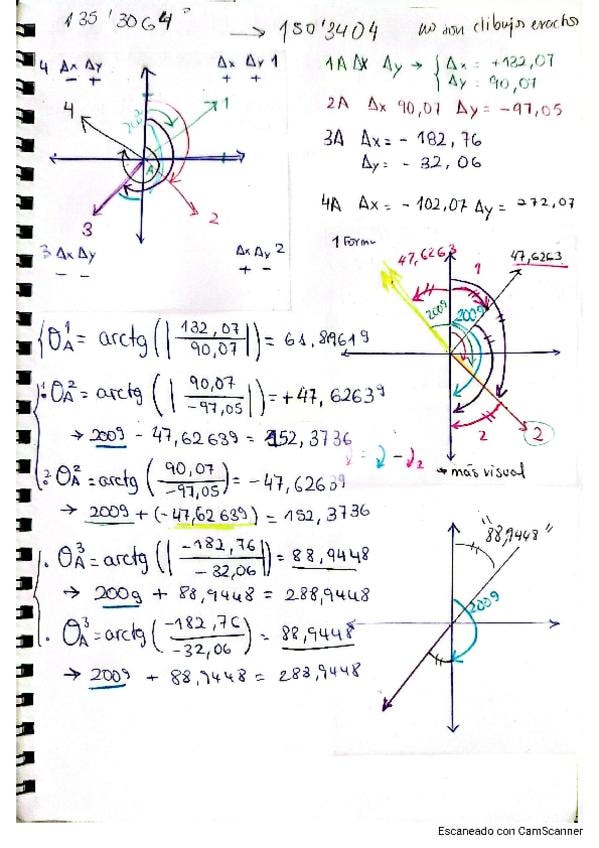 135'3064g → 150'3404 no son dibujos exactos
4 Δx Δy Δx Δy 1
- + + +
1A Δx Δy → { Δx = +132,07
Δy = 90,07
2A Δx 90,07 Δy = -97,05
3A Δx = - 182,76
Δy = - 32,06
4A Δx = - 102,07 Δy = 272,07
4 1
200g
A
3 2
3 Δx Δy Δx Δy 2
- - + -
1 Forma
47,6263 1 47,6263
200g 200g
2 2
→ más visual
θ_A^1 = arctg (|132,07/90,07|) = 61,89619
1. θ_A^2 = arctg (|90,07/-97,05|) = +47,62639
→ 200g - 47,62639 = 152,3736
= - 2
2. θ_A^2 = arctg (90,07/-97,05) = -47,62639
→ 200g + (-47,62639) = 152,3736
. θ_A^3 = arctg (|-182,76/-32,06|) = 88,9448
→ 200g + 88,9448 = 288,9448
. θ_A^3 = arctg (-182,76/-32,06) = 88,9448
→ 200g + 88,9448 = 288,9448
"88,9448"
200g
Escaneado con CamScanner